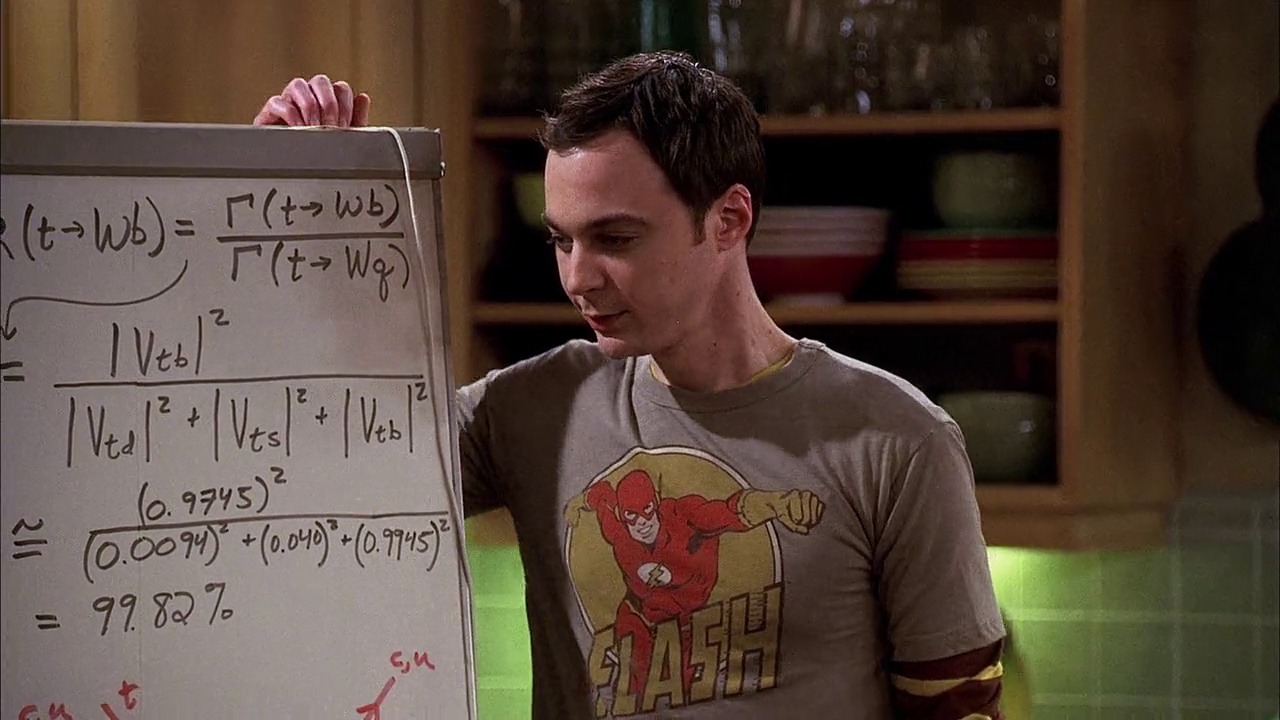 R(t→Wb) = Γ(t→Wb) / Γ(t→Wq)
= |Vtb|² / |Vtd|² + |Vts|² + |Vtb|²
≅ (0.9745)² / (0.0094)² + (0.040)² + (0.9945)²
= 99.82%
c,u
t
c,u
FLASH